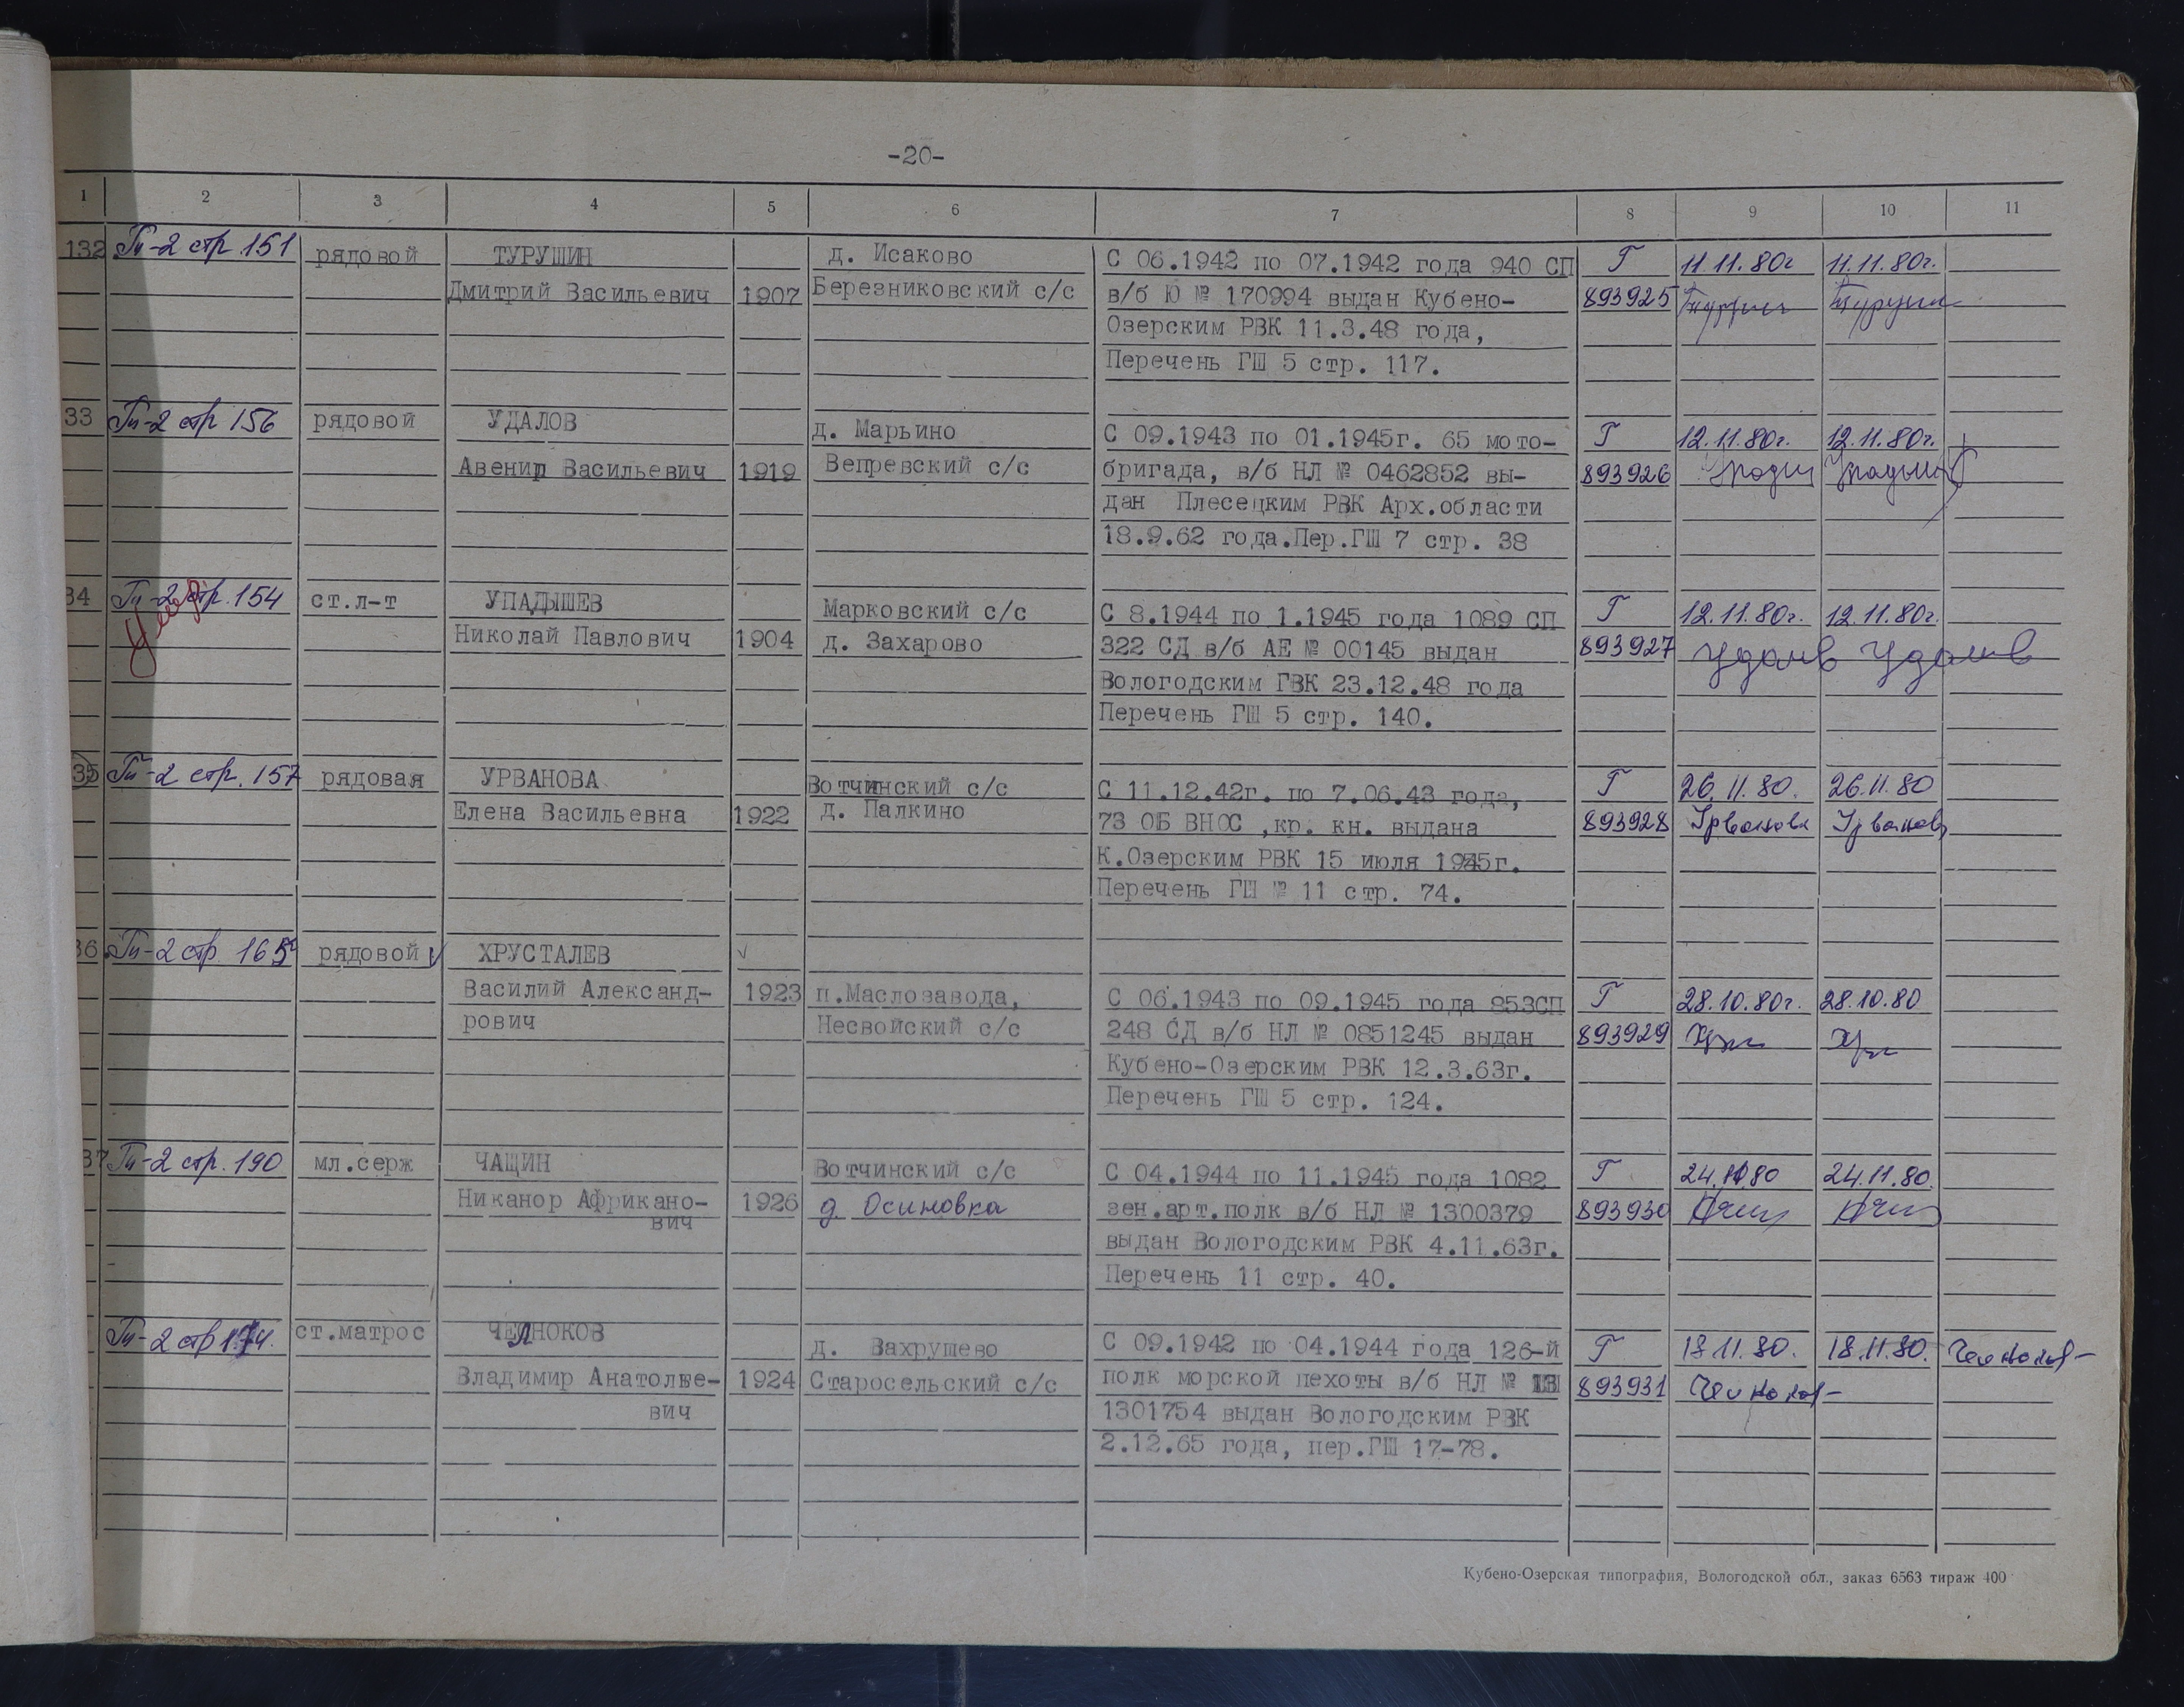 -20-
1 2 3 4 5 6 7 8 9 10 11
132 Гп-2 стр. 151 рядовой ТУРУШИН д. Исаково С 06.1942 по 07.1942 года 940 СП Г 11.11.80г 11.11.80г.
Дмитрий Васильевич 1907 Березниковский с/с в/б Ю № 170994 выдан Кубено- 893925
Озерским РВК 11.3.48 года,
Перечень ГШ 5 стр. 117.
33 Гп-2 стр 156 рядовой УДАЛОВ д. Марьино С 09.1943 по 01.1945г. 65 мото- Г 12.11.80г. 12.11.80г.
Авенир Васильевич 1919 Вепревский с/с бригада, в/б НЛ № 0462852 вы- 893926
дан Плесецким РВК Арх.области
18.9.62 года.Пер.ГШ 7 стр. 38
34 Гп-2 стр. 154 ст.л-т УПАДЫШЕВ Марковский с/с С 8.1944 по 1.1945 года 1089 СП Г 12.11.80г. 12.11.80г.
Николай Павлович 1904 д. Захарово 322 СД в/б АЕ № 00145 выдан 893927
Вологодским ГВК 23.12.48 года
Перечень ГШ 5 стр. 140.
35 Гп-2 стр. 157 рядовая УРВАНОВА Вотчинский с/с С 11.12.42г. по 7.06.43 года, Г 26.11.80. 26.11.80
Елена Васильевна 1922 д. Палкино 73 ОБ ВНОС ,кр. кн. выдана 893928 Урванова Урванова
К.Озерским РВК 15 июля 1945г.
Перечень ГШ № 11 стр. 74.
36 Гп-2 стр 165 рядовой ХРУСТАЛЕВ
Василий Александ- 1923 п.Маслозавода, С 06.1943 по 09.1945 года 853СП Г 28.10.80г. 28.10.80
рович Несвойский с/с 248 СД в/б НЛ № 0851245 выдан 893929
Кубено-Озерским РВК 12.3.63г.
Перечень ГШ 5 стр. 124.
37 Гп-2 стр. 190 мл.серж ЧАЩИН Вотчинский с/с С 04.1944 по 11.1945 года 1082 Г 24.11.80 24.11.80.
Никанор Африкано- 1926 д. Осиновка зен.арт.полк в/б НЛ № 1300379 893930
вич
выдан Вологодским РВК 4.11.63г.
Перечень 11 стр. 40.
Гп-2 стр 174. ст.матрос ЧЕЛНОКОВ д. Вахрушево С 09.1942 по 04.1944 года 126-й Г 18.11.80. 18.11.80.
Владимир Анатолье- 1924 Старосельский с/с полк морской пехоты в/б НЛ № 893931
вич 1301754 выдан Вологодским РВК
2.12.65 года, пер.ГШ 17-78.
Кубено-Озерская типография, Вологодской обл., заказ 6563 тираж 400